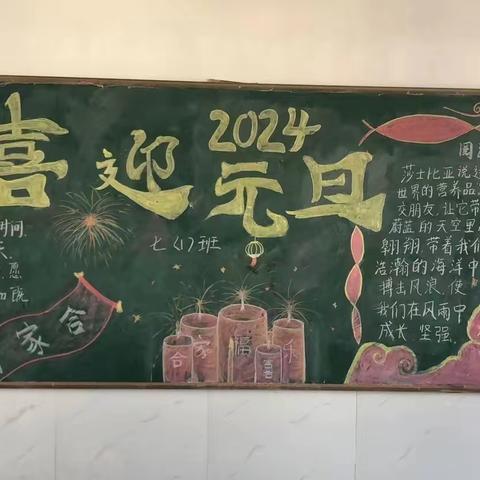 喜迎元旦
2024
七(1)班
时间
愿
家合
合家福乐
喜
莎士比亚说过
世界的营养品
交朋友,让它带
蔚蓝的天空里
翱翔,带着我们
浩瀚的海洋中
搏击风浪,使
我们在风雨中
成长 坚强